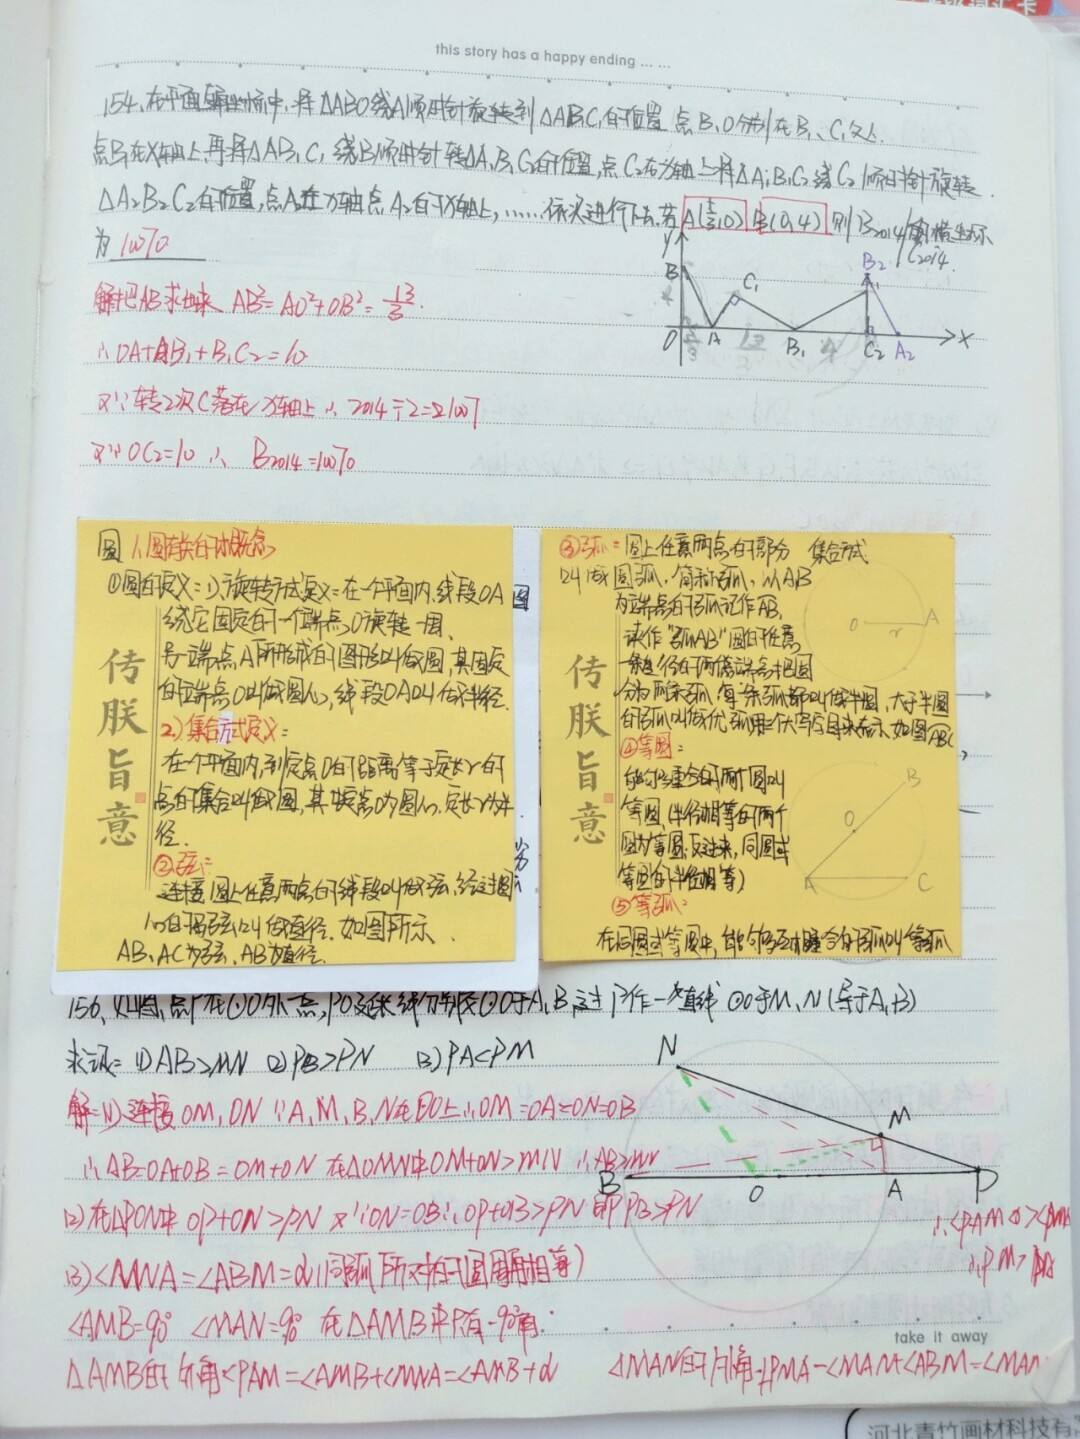 this story has a happy ending ... ...
154.在平面 中,将△ABO绕A顺时针旋转到△AB₁C₁的位置 点B,O分别在B₁、C₁处
点B₁在X轴上再将△AB₁C₁绕B₁顺时针转△A₁B₁C₂的位置,点C₂在X轴上将△A₁B₁C₂绕C₂顺时针旋转
△A₂B₂C₂的位置,点A₂在X轴 点A₂的X轴上,……依次进行下去.若A( ,0)B(0,4)则B₂₀₁₄ 横坐标
为10070
C₂₀₁₄
y
B
C₁
B₂
A₁
O
A
B₁
C₂
A₂
X
解把AB求出来 AB²=AO²+OB²=13/3.
∴OA+AB₁+B₁C₂=10
又∵转2次C落在X轴上∴2014÷2=1007
又∵OC₂=10∴ B₂₀₁₄=10070
圆 1.圆有关的 概念
①圆的定义:1)旋转方式定义:在一个平面内,线段OA
绕它固定的一个端点O旋转一周,
另一端点A所形成的图形叫做圆,其固定
的端点O叫做圆心,线段OA叫做半径.
2)集合方式定义:
在一个平面内,到定点O的距离等于定长r的
点的集合叫做圆,其中定点O为圆心,定长r为半
径.
②弦:
连接圆上任意两点的线段叫做弦,经过圆
心的弦叫做直径.如图所示
AB、AC为弦,AB为直径.
传朕旨意
圆
劣
③弧:圆上任意两点的部分 集合方式
叫做圆弧,简称弧,以AB
为端点的弧记作AB,
读作"弧AB"圆的任意
一条直径的两个端点把圆
分为两条弧,每一条弧都叫做半圆,大于半圆
的弧叫做优弧用三个大写字母来表示,如图ABC
④等圆:
能够重合的两个圆叫
等圆,(半径相等的两个
圆为等圆:反过来,同圆或
等圆的半径相等)
⑤等弧:
在同圆或等圆中,能够互相重合的弧叫等弧
传朕旨意
O
r
A
B
O
A
C
156,如图,点P在⊙O外一点,PO延长线分别交⊙O于A,B,过P作一条直线 ⊙O于M,N(异于A,B)
求证:(1)AB>MN (2)PB>PN (3)PA<PM
N
M
B
O
A
P
解:(1)连接OM,ON∵A,M,B,N在⊙O上∴OM=OA=ON=OB
∴AB=OA+OB=OM+ON 在△OMN中OM+ON>MN ∴AB>MN
(2)在△PON中 OP+ON>PN 又∵ON=OB∴OP+OB>PN即PB>PN
(3)<MNA=<ABM=α(同弧所对的圆周角相等)
<AMB=90° <MAN=90° 在△AMB中只有一90°角.
△AMB的外角<PAM=<AMB+<MNA=<AMB+α
△MAN的外角 PMA=<MAN+<ABM=<MAN
∴<PAM>
∴PM>PA
take it away
河北青竹画材科技有